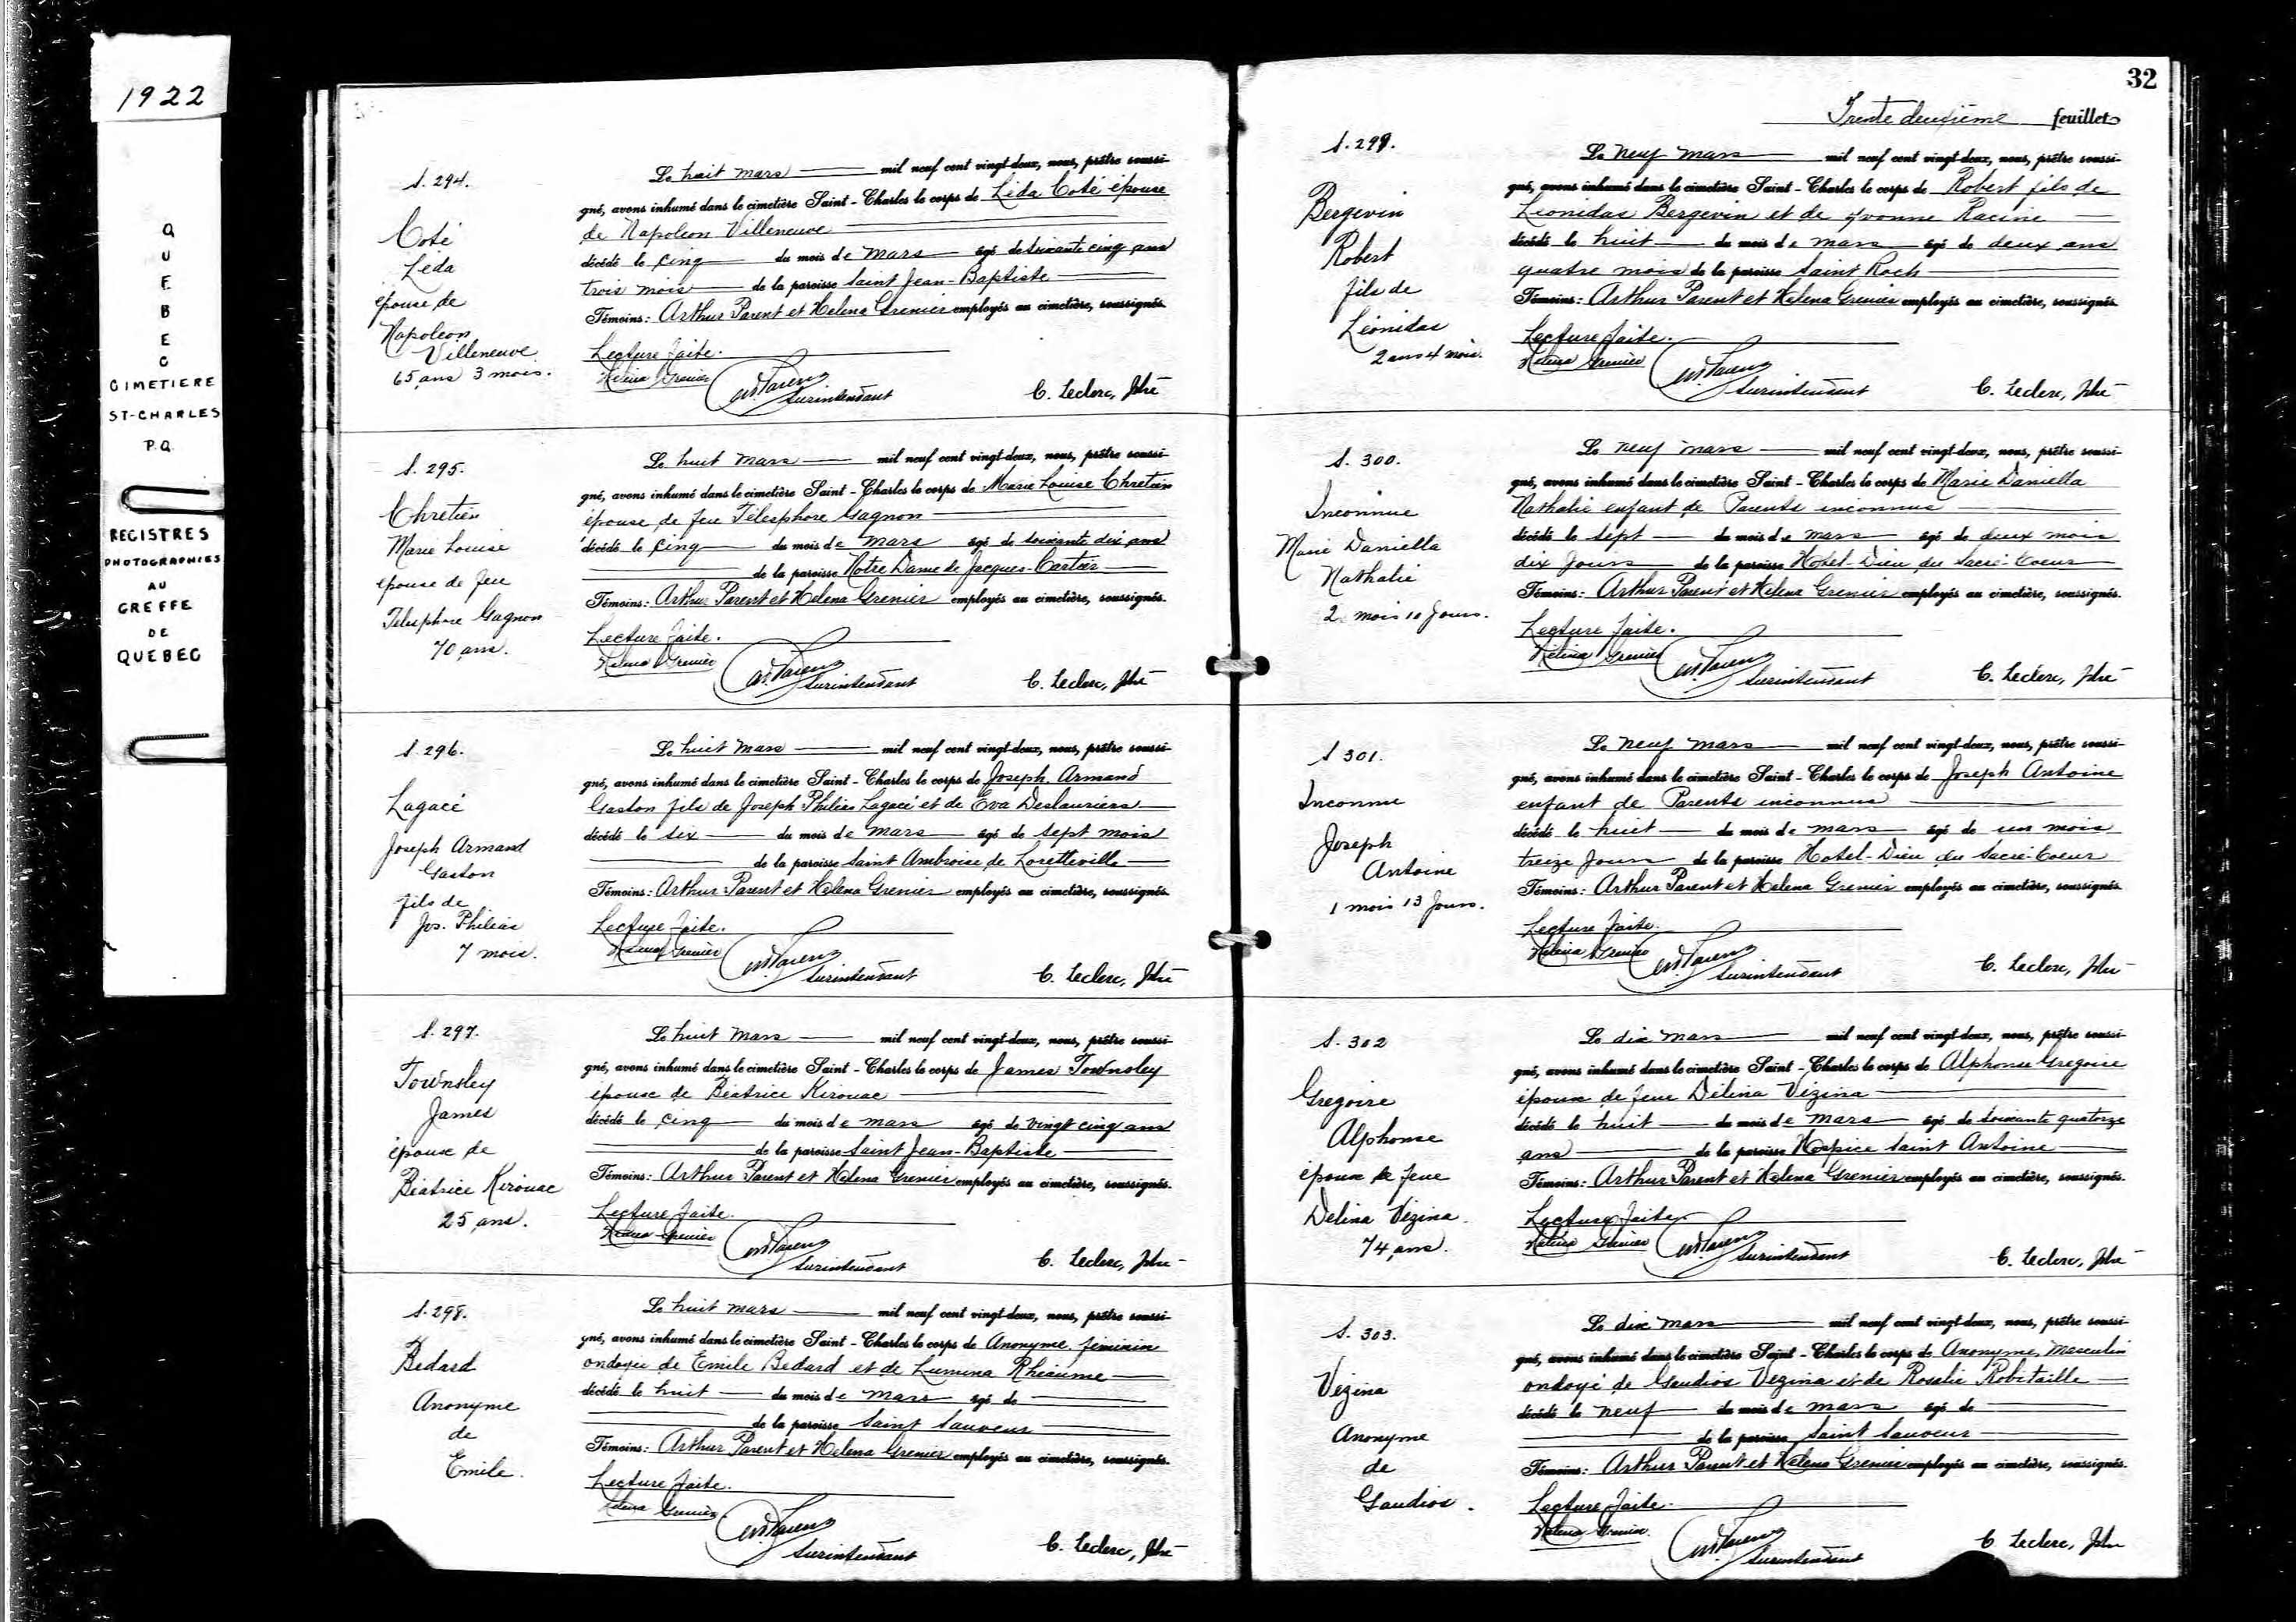 1922
QUEBEC
CIMETIERE
ST-CHARLES
P.Q.
REGISTRES
PHOTOGRAPHIES
AU
GREFFE
DE
QUEBEC
S. 294.
Coté
Léda
épouse de
Napoléon
Villeneuve
65 ans 3 mois.
Le huit mars mil neuf cent vingt-deux, nous, prêtre soussi-
gné, avons inhumé dans le cimetière Saint-Charles le corps de Léda Coté épouse
de Napoléon Villeneuve
décédé le cinq du mois de mars âgé de soixante cinq ans
trois mois de la paroisse Saint Jean-Baptiste
Témoins: Arthur Parent et Helena Grenier employés au cimetière, soussignés.
Lecture faite.
Helena Grenier
Surintendant
C. Leclerc, Ptre
S. 295.
Chretien
Marie Louise
épouse de feu
Telesphore Gagnon
70 ans.
Le huit mars mil neuf cent vingt-deux, nous, prêtre soussi-
gné, avons inhumé dans le cimetière Saint-Charles le corps de Marie Louise Chretien
épouse de feu Télesphore Gagnon
décédé le cinq du mois de mars âgé de soixante dix ans
de la paroisse Notre Dame de Jacques-Cartier
Témoins: Arthur Parent et Helena Grenier employés au cimetière, soussignés.
Lecture faite.
Helena Grenier
Surintendant
C. Leclerc, Ptre
S. 296.
Lagacé
Joseph Armand
Gaston
fils de
Jos. Philias
7 mois.
Le huit mars mil neuf cent vingt-deux, nous, prêtre soussi-
gné, avons inhumé dans le cimetière Saint-Charles le corps de Joseph Armand
Gaston fils de Joseph Philias Lagacé et de Eva Deslauriers
décédé le six du mois de mars âgé de sept mois
de la paroisse Saint Ambroise de Loretteville
Témoins: Arthur Parent et Helena Grenier employés au cimetière, soussignés.
Lecture faite.
Helena Grenier
Surintendant
C. Leclerc, Ptre
S. 297.
Townsley
James
époux de
Béatrice Kirouac
25 ans.
Le huit mars mil neuf cent vingt-deux, nous, prêtre soussi-
gné, avons inhumé dans le cimetière Saint-Charles le corps de James Townsley
époux de Béatrice Kirouac
décédé le cinq du mois de mars âgé de vingt cinq ans
de la paroisse Saint Jean-Baptiste
Témoins: Arthur Parent et Helena Grenier employés au cimetière, soussignés.
Lecture faite.
Helena Grenier
Surintendant
C. Leclerc, Ptre
S. 298.
Bedard
Anonyme
de
Emile.
Le huit mars mil neuf cent vingt-deux, nous, prêtre soussi-
gné, avons inhumé dans le cimetière Saint-Charles le corps de Anonyme féminin
ondoyée de Emile Bedard et de Lumina Rhéaume
décédé le huit du mois de mars âgé de
de la paroisse Saint Sauveur
Témoins: Arthur Parent et Helena Grenier employés au cimetière, soussignés.
Lecture faite.
Helena Grenier
Surintendant
C. Leclerc, Ptre
32
Trente deuxième feuillet
S. 299.
Bergevin
Robert
fils de
Léonidas
2 ans 4 mois.
Le neuf mars mil neuf cent vingt-deux, nous, prêtre soussi-
gné, avons inhumé dans le cimetière Saint-Charles le corps de Robert fils de
Léonidas Bergevin et de Yvonne Racine
décédé le huit du mois de mars âgé de deux ans
quatre mois de la paroisse Saint Roch
Témoins: Arthur Parent et Helena Grenier employés au cimetière, soussignés.
Lecture faite.
Helena Grenier
Surintendant
C. Leclerc, Ptre
S. 300.
Inconnue
Marie Daniella
Nathalie
2 mois 10 jours.
Le neuf mars mil neuf cent vingt-deux, nous, prêtre soussi-
gné, avons inhumé dans le cimetière Saint-Charles le corps de Marie Daniella
Nathalie enfant de Parents inconnus
décédé le sept du mois de mars âgé de deux mois
dix jours de la paroisse Hotel-Dieu du Sacré-Coeur
Témoins: Arthur Parent et Helena Grenier employés au cimetière, soussignés.
Lecture faite.
Helena Grenier
Surintendant
C. Leclerc, Ptre
S 301.
Inconnu
Joseph
Antoine
1 mois 13 jours.
Le neuf mars mil neuf cent vingt-deux, nous, prêtre soussi-
gné, avons inhumé dans le cimetière Saint-Charles le corps de Joseph Antoine
enfant de Parents inconnus
décédé le huit du mois de mars âgé de un mois
treize jours de la paroisse Hotel-Dieu du Sacré-Coeur
Témoins: Arthur Parent et Helena Grenier employés au cimetière, soussignés.
Lecture faite.
Helena Grenier
Surintendant
C. Leclerc, Ptre
S. 302
Gregoire
Alphonse
époux de feue
Delina Vézina.
74 ans.
Le dix mars mil neuf cent vingt-deux, nous, prêtre soussi-
gné, avons inhumé dans le cimetière Saint-Charles le corps de Alphonse Gregoire
époux de feue Délina Vézina
décédé le huit du mois de mars âgé de soixante quatorze
ans de la paroisse Hospice Saint Antoine
Témoins: Arthur Parent et Helena Grenier employés au cimetière, soussignés.
Lecture faite
Helena Grenier
Surintendant
C. Leclerc, Ptre
S. 303.
Vézina
Anonyme
de
Gaudios.
Le dix mars mil neuf cent vingt-deux, nous, prêtre soussi-
gné, avons inhumé dans le cimetière Saint-Charles le corps de Anonyme masculin
ondoyé de Gaudios Vezina et de Rosalie Robitaille
décédé le neuf du mois de mars âgé de
de la paroisse Saint Sauveur
Témoins: Arthur Parent et Helena Grenier employés au cimetière, soussignés.
Lecture faite.
Helena Grenier
Surintendant
C. Leclerc, Ptre